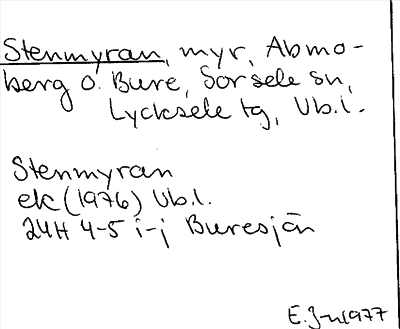 Stenmyran, myr, Abmo-
berg o. Bure, Sorsele sn,
Lycksele tg, Vb.l.
Stenmyran
ek (1976) Vb.l.
24H 4-5 i-j Buresjön
E.J-n 1977